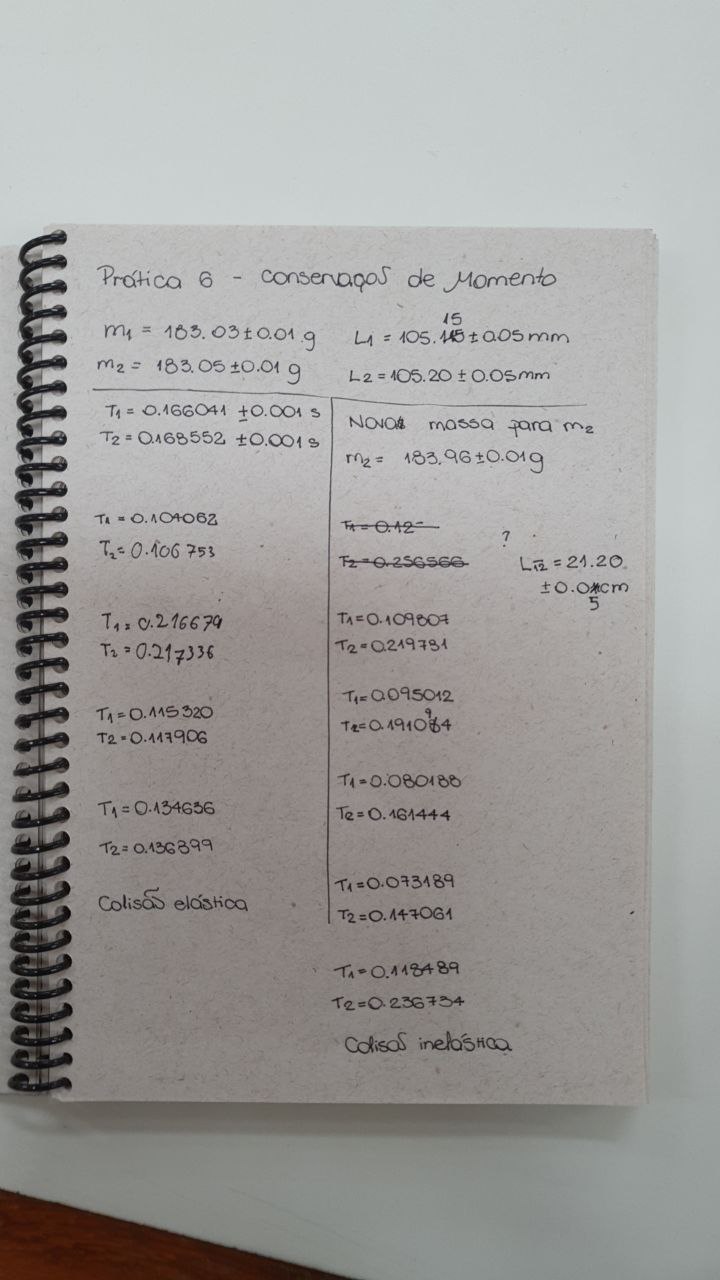 Prática 6 - Conservação de Momento
m1 = 183.03±0.01 g
m2 = 183.05±0.01 g
15
L1 = 105.145±0.05mm
L2 = 105.20 ±0.05mm
T1 = 0.166041 ±0.001 s
T2 = 0.168552 ±0.001 s
T1 = 0.104062
T2 = 0.106753
T1 = 0.216679
T2 = 0.217336
T1 = 0.115320
T2 = 0.117906
T1 = 0.134636
T2 = 0.136899
Colisão elástica
Nova massa para m2
m2 = 183.96±0.01g
T1 = 0.12
T2 = 0.256566
?
L12 = 21.20
±0.0 cm
5
T1 = 0.109807
T2 = 0.219731
T1 = 0.095012
9
T2 = 0.191084
T1 = 0.080188
T2 = 0.161444
T1 = 0.073189
T2 = 0.147061
T1 = 0.118489
T2 = 0.236734
Colisão inelástica